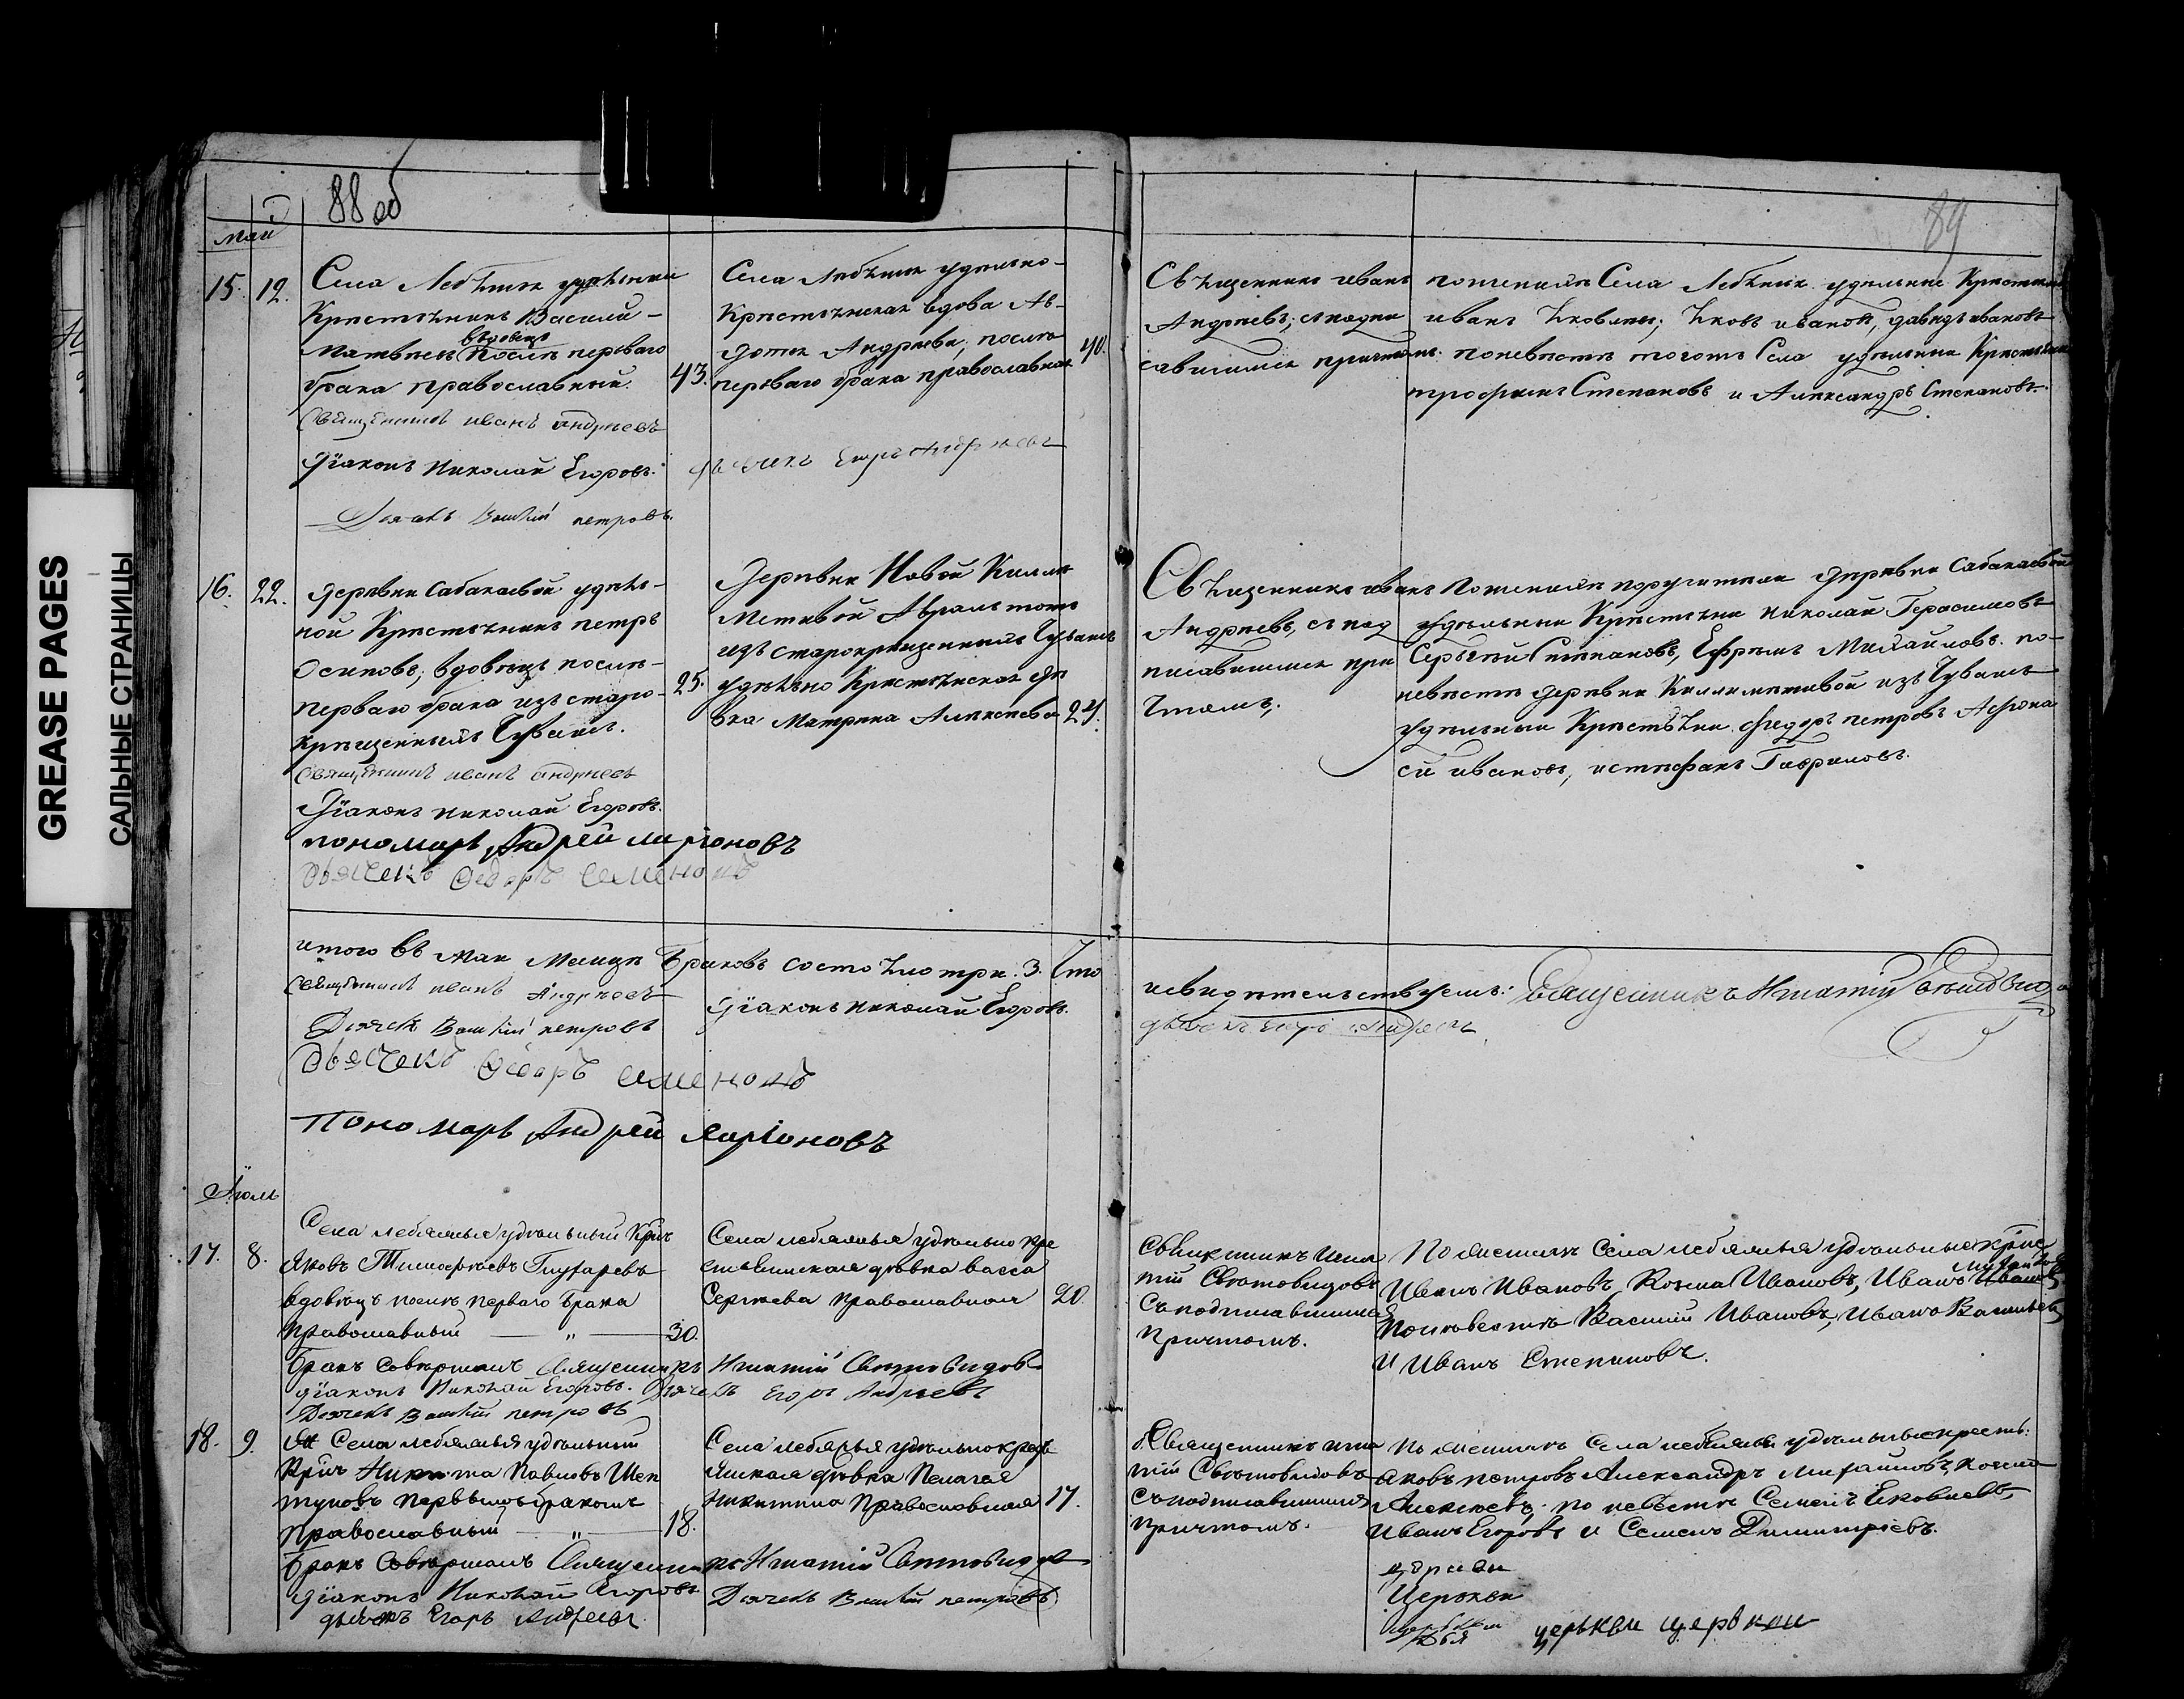 88 об
89
GREASE PAGES
САЛЬНЫЕ СТРАНИЦЫ
май
15. 12.
Села
Крестьянинъ Василій
Матвеевъ вдовецъ послѣ перваго
брака православный. 43.
Священникъ иванъ андреевъ
Діаконъ николай Егоровъ.
Дьячекъ Василій петровъ.
Села удѣльно-
Крестьянская вдова Ав-
дотья Андреева, послѣ
перваго брака православная 40.
дьячекъ Егоръ Андреевъ
Священникъ иванъ
Андреевъ, съ подпи
савшимся причтомъ.
по женихѣ Села удѣльные Крестьяне
иванъ Яковлевъ, Яковъ ивановъ, давидъ ивановъ
по невѣстѣ тогожъ Села удѣльные Крестьяне
трофимъ Степановъ и Александръ Степановъ.
16. 22.
деревни Сабакаевой удѣль-
ной Крестьянинъ петръ
Осиповъ, вдовецъ послѣ
перваго брака изъ старо-
крещенныхъ Чувашъ. 25.
Священникъ иванъ андреевъ
Діаконъ николай Егоровъ.
пономарь Андрей лиріоновъ
дьячекъ Ѳедоръ семеновъ
Деревни Новой
изъ старокрещенныхъ Чувашъ
удѣльно Крестьянская дѣ
вка Матрена Алексеева 24.
Священникъ иванъ
Андреевъ, съ под
писавшимся при
чтомъ,
По женихѣ поручители деревни Сабакаевой
удѣльныи Крестьяне николай Герасимовъ
Сергѣй Степановъ, Ефремъ Михайловъ. по
невѣстѣ деревни изъ Чувашъ
удѣльныи Крестьяне федоръ петровъ Афона
сій ивановъ, и стефанъ Гавриловъ.
итого въ маи месяцѣ Браковъ состоялно три. 3. Что
и свидѣтельствуемъ: Священникъ Игнатій
Священникъ иванъ Андреевъ
Діаконъ николай Егоровъ.
дьячекъ Егоръ Андреевъ
Дьячекъ Василій петровъ
дьячекъ Ѳедоръ семеновъ
Пономарь Андрей ларіоновъ
Іюль
17. 8.
Села лебяжья удѣльный Крич
Яковъ Тимофеевъ
вдовецъ послѣ перваго брака
православный — „ — 30.
Бракъ совершалъ Священникъ Игнатій Святовидовъ
діаконъ Николай Егоровъ. Дьячекъ Егоръ Андреевъ
Дьячекъ Василій петровъ
Села лебяжья удѣльно кре
стьянская дѣвка васса
Сергѣева православная 20.
Священникъ Игна
тій Святовидовъ
съ подписавшимся
причтомъ.
По женихѣ Села лебяжья удѣльные крие
Иванъ Ивановъ, Козма Ивановъ, Иванъ
По невѣстѣ Василій Ивановъ, Иванъ Васильевъ
и Иванъ Степановъ.
18. 9.
Села лебяжья удѣльный
Крич Никита Павловъ Шеп
туновъ первымъ бракомъ
православный — „ — 18.
Бракъ совершалъ Священникъ Игнатій Святовидовъ
діаконъ Николай Егоровъ. Дьячекъ Василій петровъ
дьячекъ Егоръ Андреевъ.
Села лебяжья удѣльно кресть
янская дѣвка Пелагея
Никитина Православная 17.
Священникъ игна
тій Святовидовъ
съ подписавшимся
причтомъ.
По женихѣ Села лебяжья удѣльные кресть:
Яковъ петровъ Александръ Михайловъ, козма
Алексеевъ. по невѣстѣ Семенъ Яковлевъ,
Иванъ Егоровъ и Семенъ Димитріевъ.
Церькви
церькви церькви